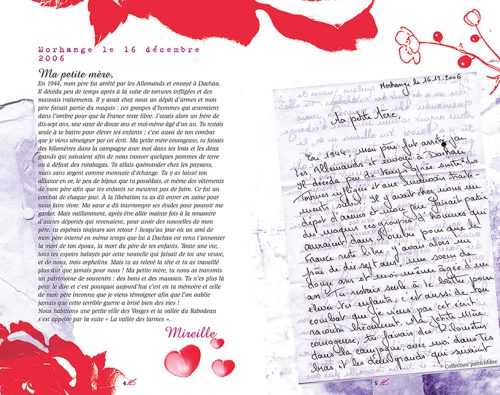 Morhange le 16 décembre
2006
Ma petite mère,
En 1944, mon père fut arrêté par les Allemands et envoyé à Dachau.
Il décéda peu de temps après à la suite de tortures infligées et des
mauvais traitements. Il y avait chez nous un dépôt d'armes et mon
père faisait partie du maquis : ces groupes d'hommes qui œuvraient
dans l'ombre pour que la France reste libre. J'avais alors un frère de
dix-sept ans, une sœur de douze ans et moi-même âgé d'un an. Tu restais
seule à te battre pour élever tes enfants ; c'est aussi de ton combat
que je viens témoigner par cet écrit. Ma petite mère courageuse, tu faisais
des kilomètres dans la campagne avec moi dans tes bras et les deux
grands qui suivaient afin de nous trouver quelques pommes de terre
ou à défaut des rutabagas. Tu allais quémander chez les paysans,
mais sans argent comme monnaie d'échange. Tu y as laissé ton
alliance en or, le peu de bijoux que tu possédais, et même des vêtements
de mon père afin que tes enfants ne meurent pas de faim. Ce fut un
combat de chaque jour. À la libération tu as dû entrer en usine pour
nous faire vivre. Ma sœur a dû interrompre ses études pour pouvoir me
garder. Mais vaillamment, après être allée mainte fois à la rencontre
d'autres déportés qui revenaient, pour avoir des nouvelles de mon
père, tu espérais toujours son retour ! Jusqu'au jour où un ami de
mon père interné en même temps que lui à Dachau est venu t'annoncer
la mort de ton époux, la mort du père de tes enfants. Toute une vie,
tous tes espoirs balayés par cette nouvelle qui faisait de toi une veuve,
et de nous, trois orphelins. Mais tu as relevé la tête et tu as travaillé
plus dur que jamais pour nous ! Ma petite mère, tu nous as transmis
un patrimoine de souvenirs : des bons et des mauvais. Tu n'es plus là
pour le dire et c'est pourquoi aujourd'hui c'est en ta mémoire et celle
de mon père inconnu que je viens témoigner afin que l'on oublie
jamais que cette terrible guerre a brisé bien des vies !
Nous habitions une petite ville des Vosges et la vallée du Rabodeau
s'est appelée par la suite « La vallée des larmes ».
Mireille
4
Morhange le 16.12.2006
Ma petite Mère,
En 1944, mon père fut arrêté par
les Allemands et envoyé à Dachau.
Il décéda peu de temps après suite aux
tortures infligées et aux mauvais traite-
ments subis. Il y avait chez nous un
dépôt d'armes et mon père faisait partie
du maquis ces groupes d'hommes qui
œuvraient dans l'ombre pour que la
France reste libre. J'avais alors un
frère de dix sept ans, une sœur de
douze ans et moi même âgée d'un
an. Tu restais seule à te battre pour
élever tes enfants ; c'est aussi de ton
combat que je viens par cet écrit
témoigner. Ma petite Mère
courageuse, tu faisais des kilomètres
dans la campagne avec moi dans tes
bras et les deux grands qui suivaient
© Collection particulière
5